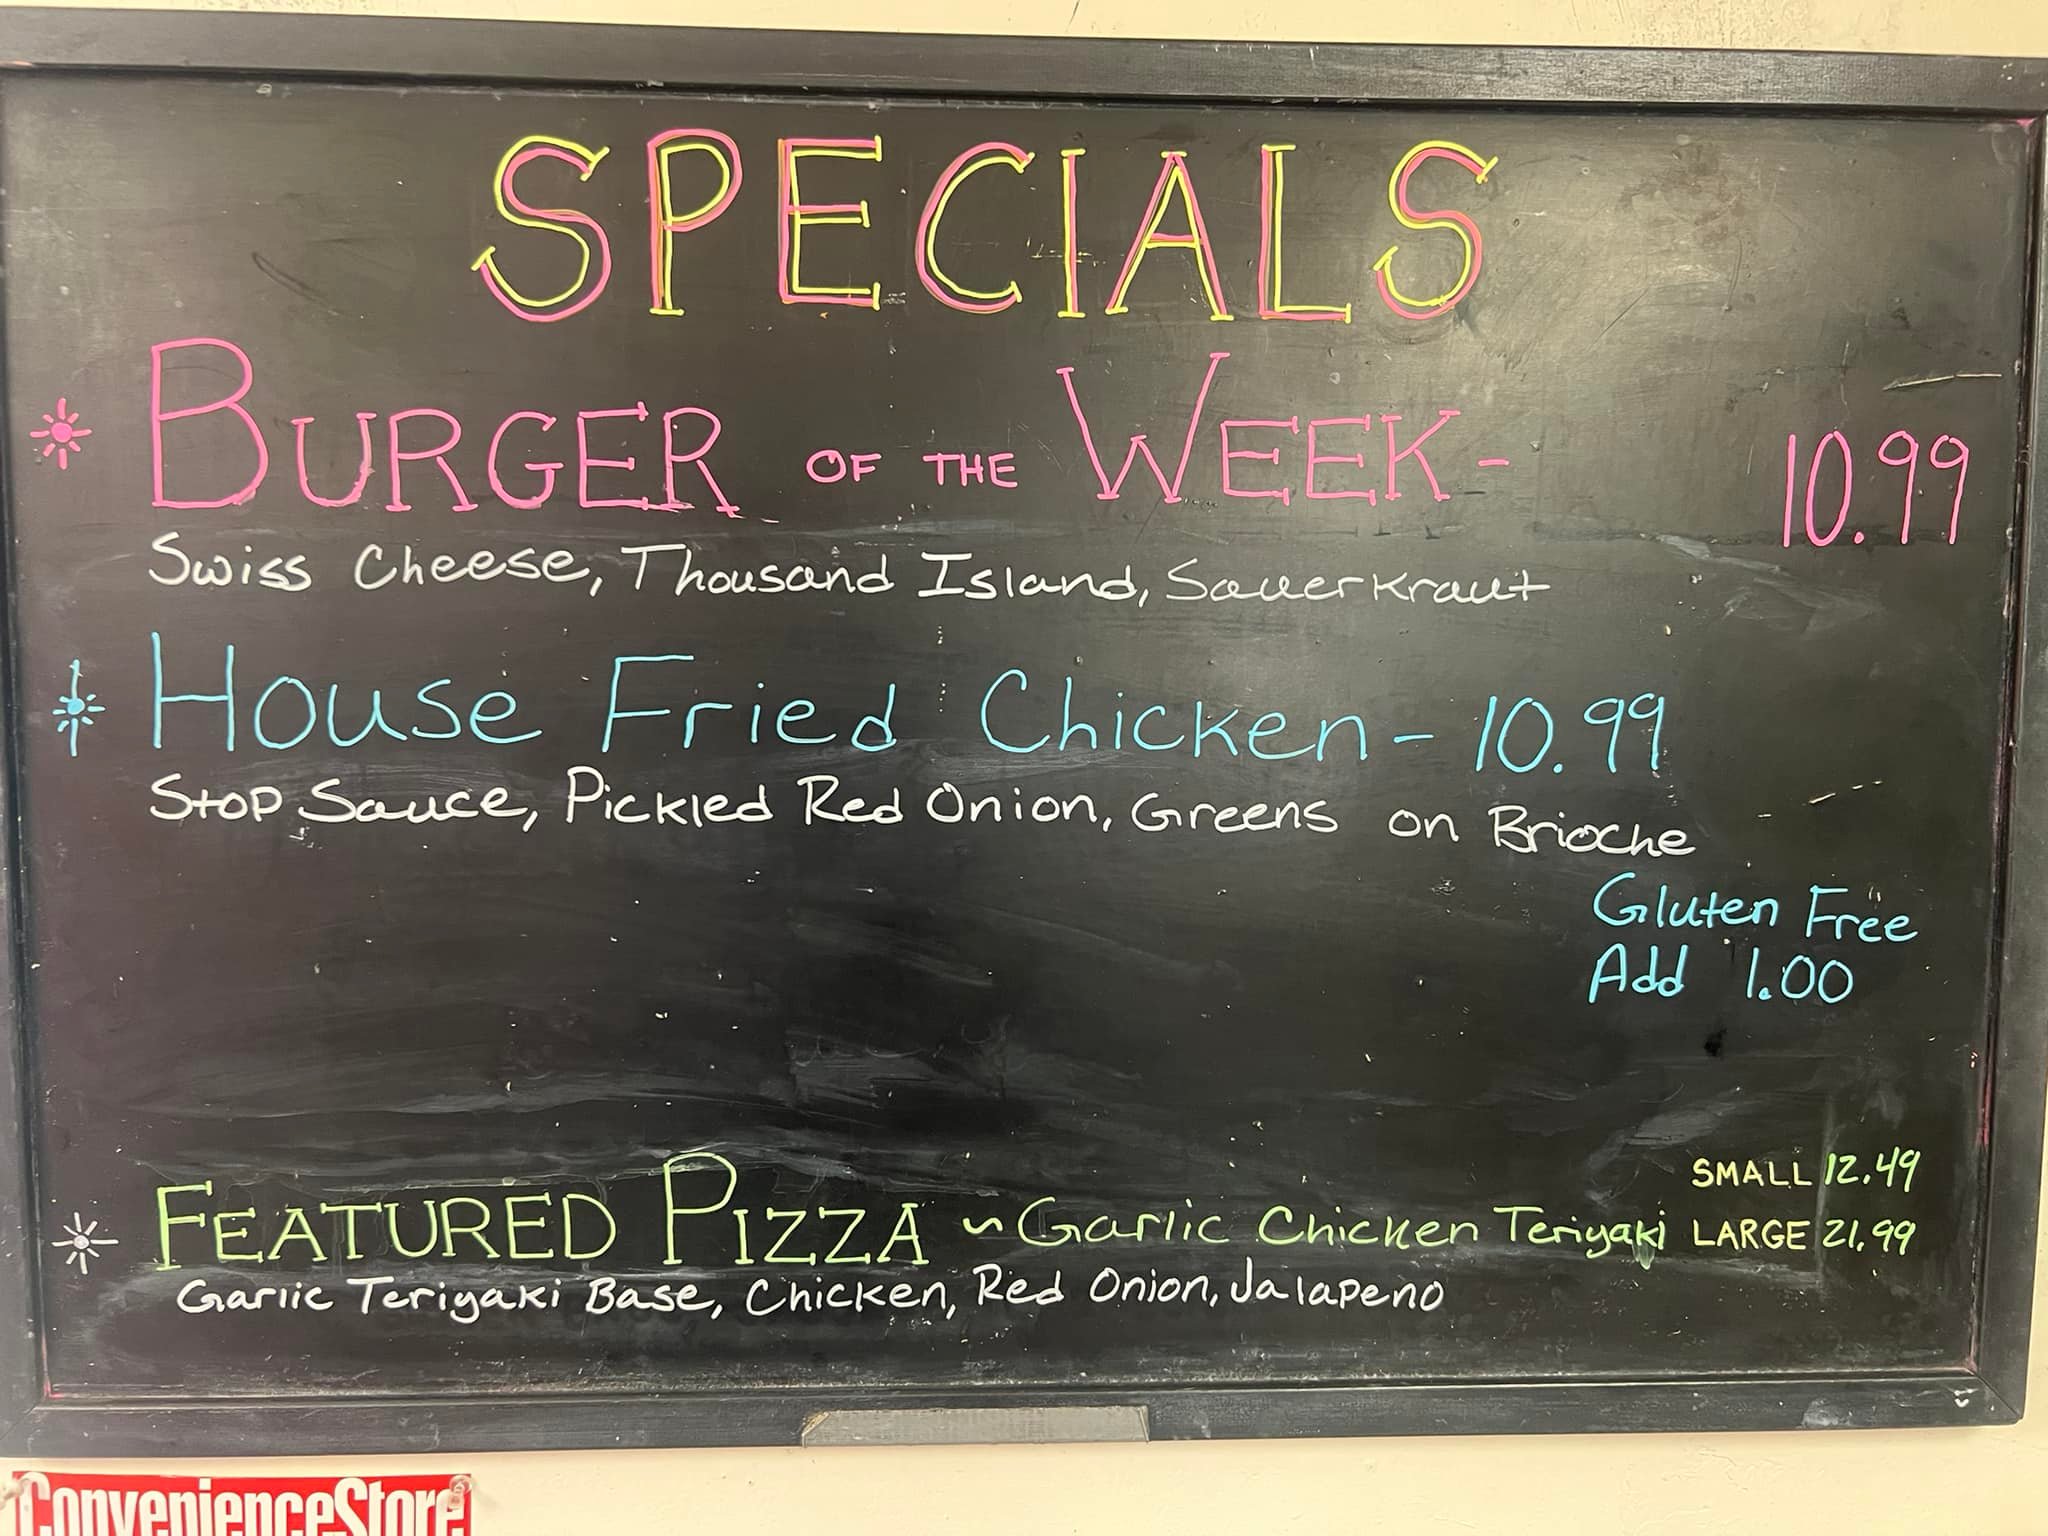 SPECIALS
BURGER OF THE WEEK - 10.99
Swiss Cheese, Thousand Island, Sauerkraut
House Fried Chicken - 10.99
Stop Sauce, Pickled Red Onion, Greens on Brioche
Gluten Free
Add 1.00
SMALL 12.49
FEATURED PIZZA ~ Garlic Chicken Teriyaki LARGE 21.99
Garlic Teriyaki Base, Chicken, Red Onion, Jalapeno
ConvenienceStore